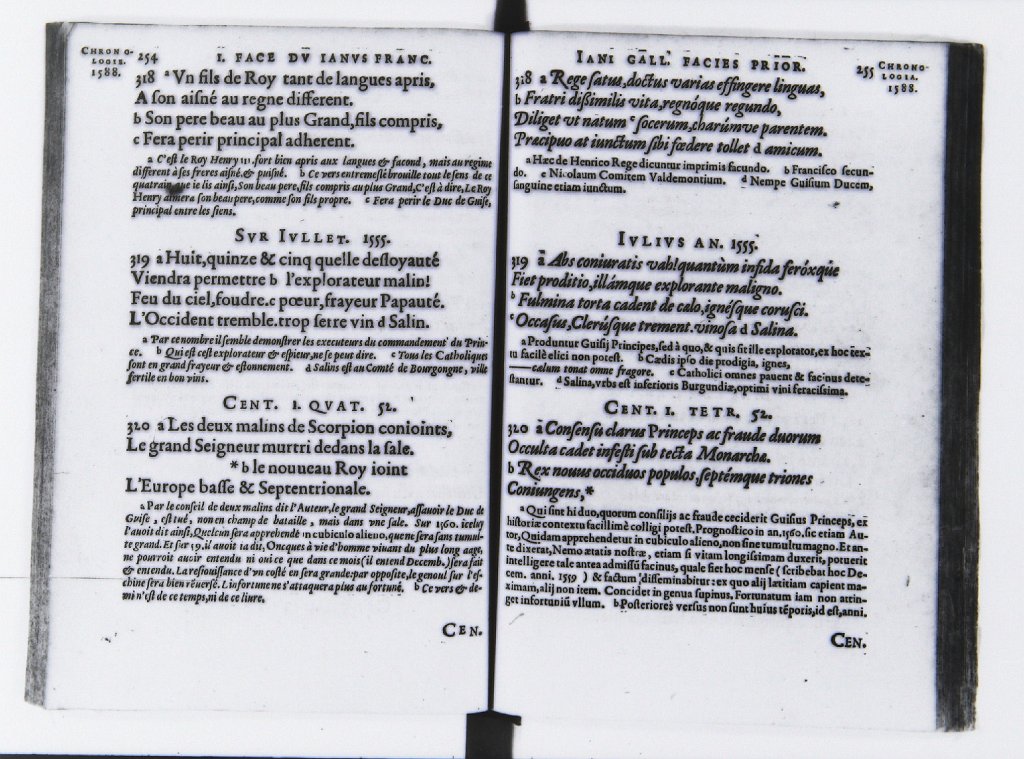 CHRONO-
LOGIE.
1588.
254
I. FACE DV IANVS FRANC.
318 a Vn fils de Roy tant de langues apris,
A son aisné au regne different.
b Son pere beau au plus Grand, fils compris,
c Fera perir principal adherent.
a C'est le Roy Henry III. fort bien apris aux langues & facond, mais au regime
different à ses freres aisné, & puisné. b Ce vers entremeslé brouille tout le sens de ce
quatrain que ie lis ainsi, Son beau pere, fils compris au plus Grand, C'est à dire, Le Roy
Henry aimera son beau pere, comme son fils propre. c Fera perir le Duc de Guise,
principal entre les siens.
SVR IVLLET. 1555.
319 a Huit, quinze & cinq quelle desloyauté
Viendra permettre b l'explorateur malin!
Feu du ciel, foudre. c pœur, frayeur Papauté.
L'Occident tremble. trop serre vin d Salin.
a Par ce nombre il semble demonstrer les executeurs du commandement du Prin-
ce. b Qui est cest explorateur & espieur, ne se peut dire. c Tous les Catholiques
sont en grand frayeur & estonnement. d Salins est au Comté de Bourgongne, ville
fertile en bon vins.
CENT. I. QVAT. 52.
320 a Les deux malins de Scorpion conioints,
Le grand Seigneur murtri dedans sa sale.
* b le nouueau Roy ioint
L'Europe basse & Septentrionale.
a Par le conseil de deux malins dit l'Auteur, le grand Seigneur, assauoir le Duc de
Guise, est tué, non en champ de bataille, mais dans vne sale. Sur 1560. icelui
l'auoit dit ainsi, Quelcun sera apprehendé in cubiculo alieno, que ne sera sans tumul-
te grand. Et ser 19. il auoit ia dit, Oncques à vie d'homme viuant du plus long aage,
ne pourroit auoir entendu ni oui ce que dans ce mois (il entend Decemb.) sera fait
& entendu. La resiouissance d'vn costé en sera grande: par opposite, le genoul sur l'es-
chine sera bien réuersé. L'infortune ne s'attaquera plus au fortuné. b Ce vers & de-
mi n'est de ce temps, ni de ce liure.
CEN.
IANI GALL. FACIES PRIOR.
255
CHRONO-
LOGIA.
1588.
318 a Rege satus, doctus varias effingere linguas,
b Fratri dissimilis vita, regnóque regundo,
Diliget vt natum c socerum, charúmve parentem.
Præcipuo at iunctum sibi fœdere tollet d amicum.
a Hæc de Henrico Rege dicuntur imprimis facundo. b Francisco secun-
do. c Nicolaum Comitem Valdemontium. d Nempe Guisium Ducem,
sanguine etiam iunctum.
IVLIVS AN. 1555.
319 a Abs coniuratis vah! quantùm infida feróxque
Fiet proditio, illámque explorante maligno.
b Fulmina torta cadent de cælo, ignésque corusci.
c Occasus, Clerúsque trement. vinosa d Salina.
a Produntur Guisij Principes, sed à quo, & quis sit ille explorator, ex hoc tex-
tu facilè elici non potest. b Cædis ipso die prodigia, ignes,
——cælum tonat omne fragore. c Catholici omnes pauent & facinus dete-
stantur. d Salina, vrbs est inferioris Burgundiæ, optimi vini feracissima.
CENT. I. TETR. 52.
320 a Consensu clarus Princeps ac fraude duorum
Occulta cadet infesti sub tecta Monarchæ.
b Rex nouus occiduos populos, septémque triones
Coniungens, *
a Qui sint hi duo, quorum consilijs ac fraude ceciderit Guisius Princeps, ex
historiæ contextu facillimè colligi potest. Prognostico in an. 1560. sic etiam Au-
tor, Quidam apprehendetur in cubiculo alieno, non sine tumultu magno. Et an-
te dixerat, Nemo ætatis nostræ, etiam si vitam longissimam duxerit, potuerit
intelligere tale antea admissū facinus, quale fiet hoc mense (scribebat hoc De-
cem. anni. 1559) & factum disseminabitur: ex quo alij lætitiam capient ma-
ximam, alij non item. Concidet in genua supinus. Fortunatum iam non attin-
get infortuniū vllum. b Posteriores versus non sunt huius tēporis, id est, anni.
CEN.